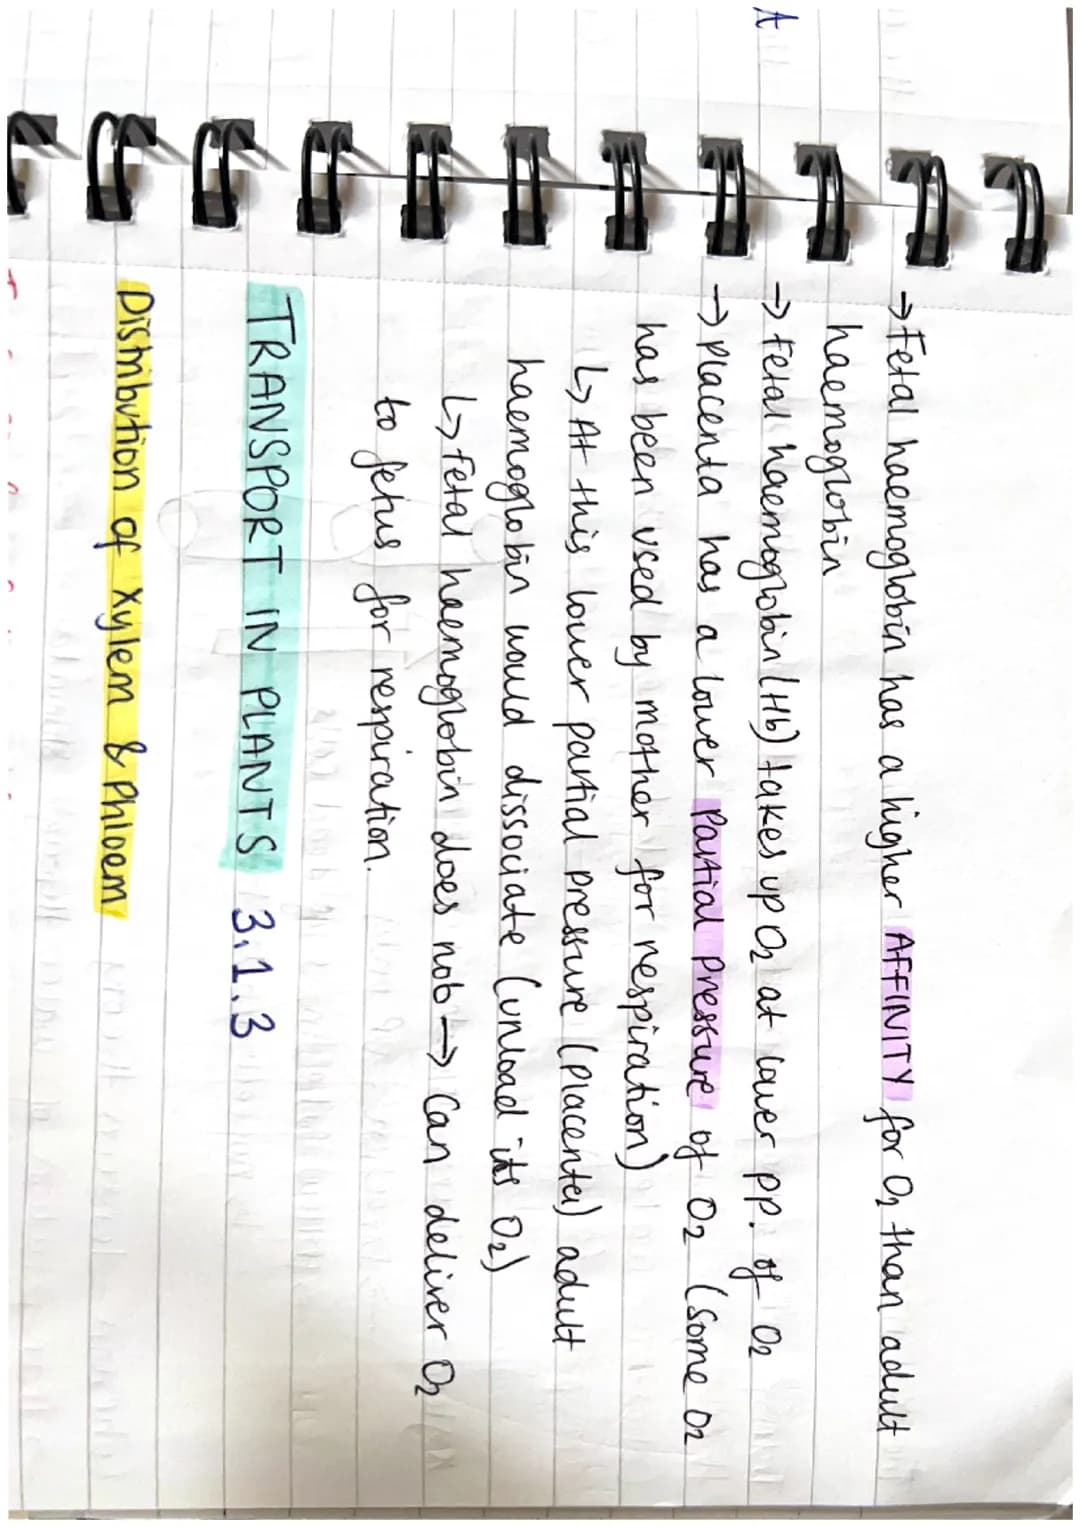 → Fetal haemoglobin has a higher AFFINITY for O2 than adult
haemoglobin
→ Fetal haemoglobin (Hb) takes up O2 at lower pp. of O2
→ Placenta has a lower Partial Pressure of O2 (some O2
has been used by mother for respiration)
↳ At this lower partial pressure (placenta) adult
haemoglobin would dissociate (unload its O2)
↳ Fetal haemoglobin does not → Can deliver O2
to fetus for respiration.
TRANSPORT IN PLANTS 3.1.3
Distribution of Xylem & Phloem